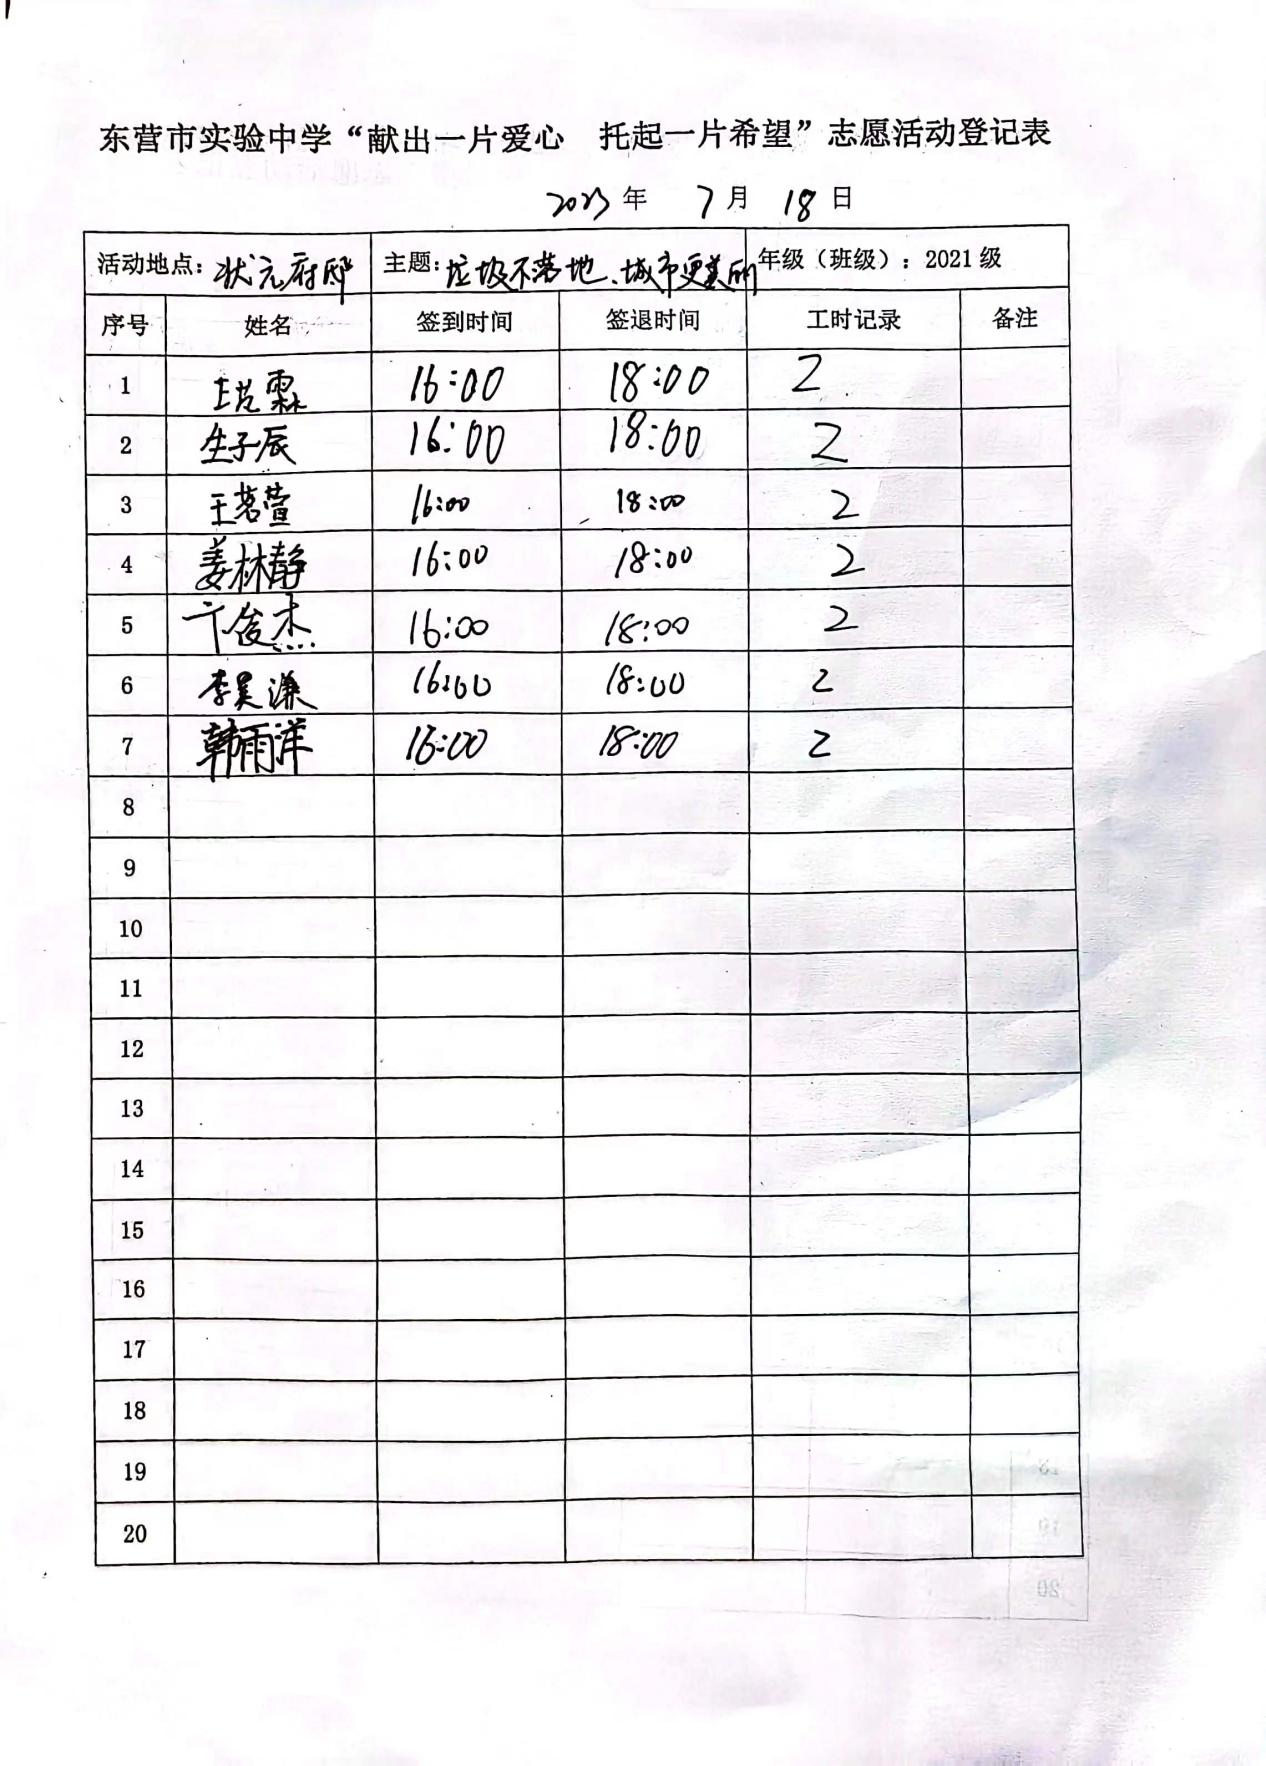 东营市实验中学“献出一片爱心 托起一片希望”志愿活动登记表
2023年 7月 18日
活动地点：状元府邸 主题：垃圾不落地、城市更美丽 年级（班级）：2021级
序号 姓名 签到时间 签退时间 工时记录 备注
1 王艺霖 16:00 18:00 2
2 生子辰 16:00 18:00 2
3 王茗萱 16:00 18:00 2
4 姜林静 16:00 18:00 2
5 卞俊杰 16:00 18:00 2
6 李昊谦 16:00 18:00 2
7 韩雨洋 16:00 18:00 2
8
9
10
11
12
13
14
15
16
17
18
19
20